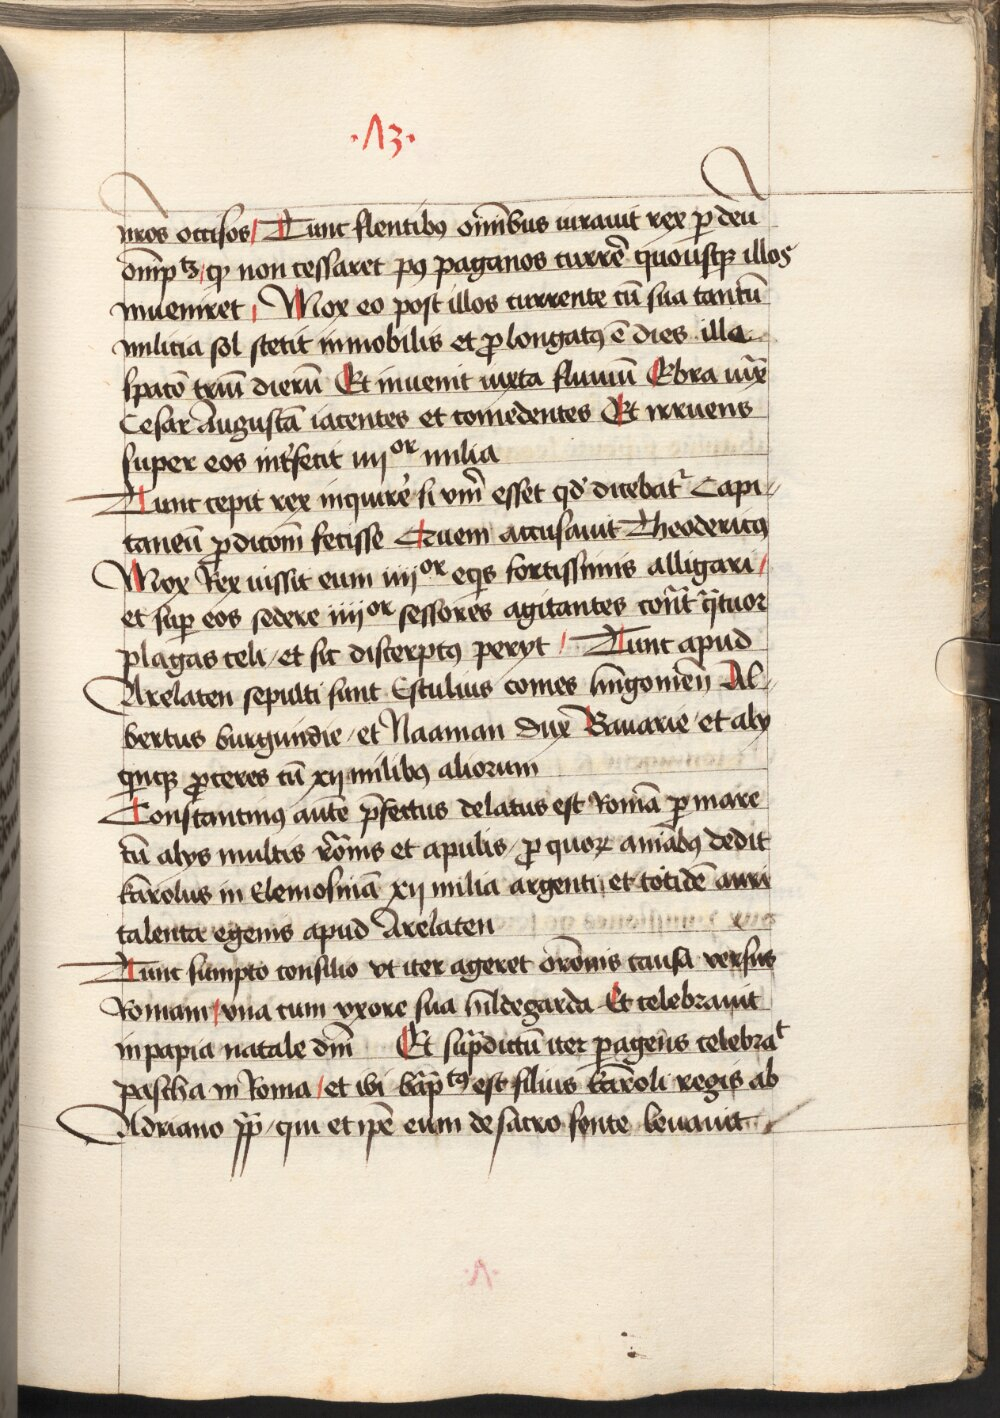 ·Λ3·
nr̄os occisos / Tunc flentibꝰ om̄ibus iurauit rex ꝑ deū
om̄pᵗꝫ / ꝙ non cessaret pꝰ paganos currē quousqꝫ illos
inueniret / Mox eo post illos currente cū sua tantū
milicia sol stetit inmobilis et ꝓlongatꝰ ē dies illa
spacō triū dierū Et inuenit iuxta fluuiū Ebra iux̄
Cesar Augustā iacentes et comedentes Et irruens
super eos int̄fecit iiijᵒʳ milia
Tunc cepit rex inquirē si vm̄ esset qd̄ dicebat᷑ Capi-
taneū ꝓdicōm fecisse Quem accusauit Theodericꝰ
Mox Rex iussit eum iiijᵒʳ eqs fortissimis alligari /
et suꝑ eos sedere iiijᵒʳ sessores agitantes con̄t q̄tuor
plagas celi / et sic discerptꝰ perijt / Tunc apud
Arelaten sepulti sunt Estulius comes lingonien̄ Al-
bertus burgundie / et Naaman dux Bauarie / et alij
qnqꝫ ꝓceres cū xij milibꝰ aliorum
Constantinꝰ autē p̄fectus delatus est Romā ꝑ mare
cū alijs multis rōnis et apulis / ꝓ quoꝝ aīabꝰ dedit
karolus in Elemosinā xij milia argenti / et totidē auri
talenta egenis apud Arelaten
Tunc sumpto consilio vt iter ageret or̄onis causa versus
Romam / vna cum vxore sua hildegarda Et celebrauit
in papia natale dn̄i Et sup̄dictū iter ꝑagens celebraᵗ
pascha in Roma / et ibi bap̄ᵗꝰ est filius karoli regis ab
Adriano pp̄ / qui et ip̄e eum de sacro fonte leuauit
·Λ·